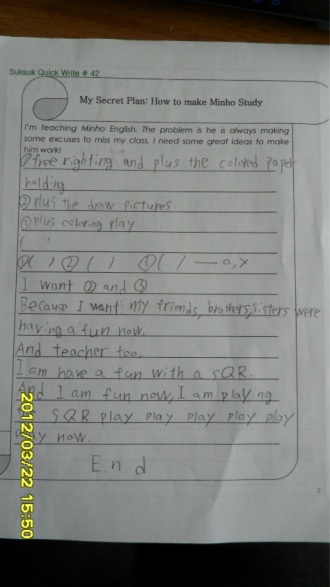 Suksuk Quick Write # 42
My Secret Plan: How to make Minho Study
I'm teaching Minho English. The problem is he is always making
some excuses to miss my class. I need some great ideas to make
him work!
① free righting and plus the colored paper
holding
② plus the drow pictures
③ plus coloring play
( )
①( ) ②( ) ③( ) — o, x
I want ② and ③
Because I want my friends, brothers, sisters were
having a fun now.
And teacher too.
I am have a fun with a SQR.
And I am fun now, I am playing
SQR play play play play play
play now.
E.n.d
2012/03/22 15:50